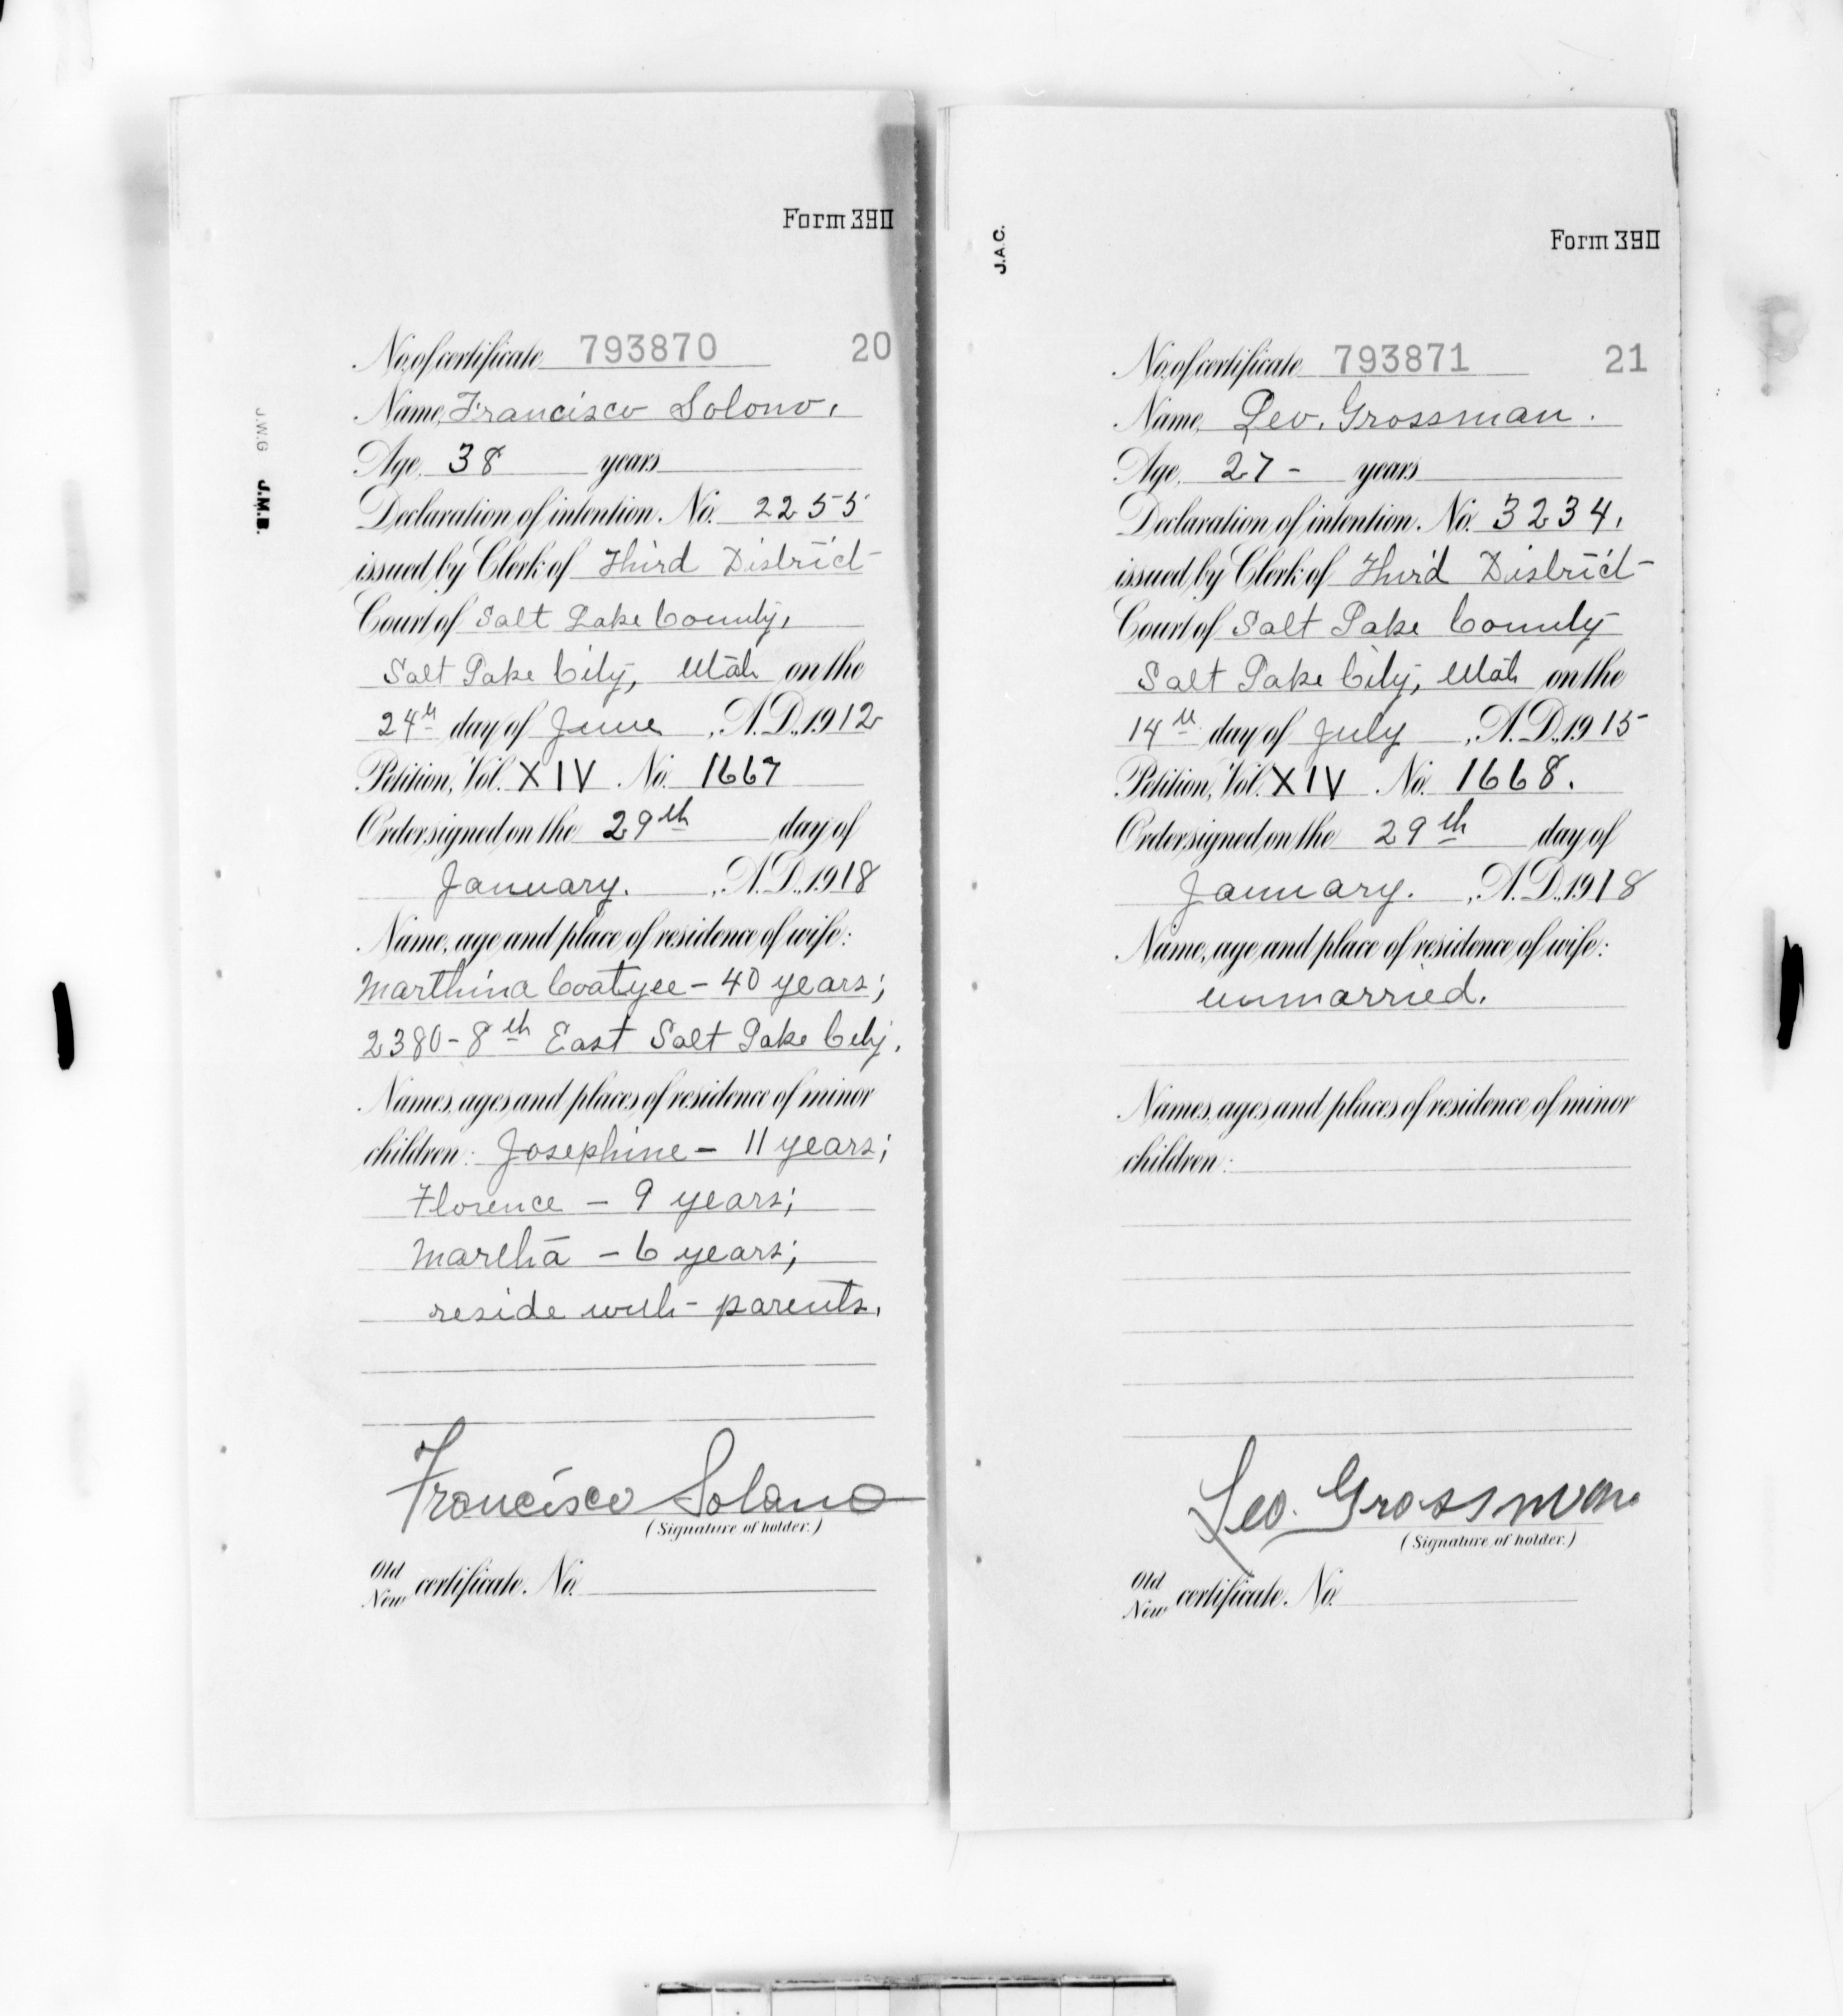 Form 390
No. of certificate 793870 20
Name, Francisco Solono.
Age, 38 years
Declaration of intention. No. 2255
issued by Clerk of Third District
Court of Salt Lake County,
Salt Lake City, Utah on the
24th day of June, A.D. 1912
Petition, Vol. XIV. No. 1667
Order signed on the 29th day of
January., A.D. 1918
Name, age and place of residence of wife:
Marthina Coatyee - 40 years;
2380 - 8th East Salt Lake City.
Names, ages and places of residence of minor
children: Josephine - 11 years;
Florence - 9 years;
Martha - 6 years;
reside with parents.
Francisco Solano
(Signature of holder.)
Old
New certificate. No.
J.W.G J.M.B.
Form 390
J.A.C.
No. of certificate 793871 21
Name, Leo. Grossman.
Age, 27 - years
Declaration of intention. No. 3234.
issued by Clerk of Third District
Court of Salt Lake County
Salt Lake City, Utah on the
14th day of July, A.D. 1915
Petition, Vol. XIV. No. 1668.
Order signed on the 29th day of
January., A.D. 1918
Name, age and place of residence of wife:
unmarried.
Names, ages and places of residence of minor
children:
Leo. Grossman
(Signature of holder.)
Old
New certificate. No.